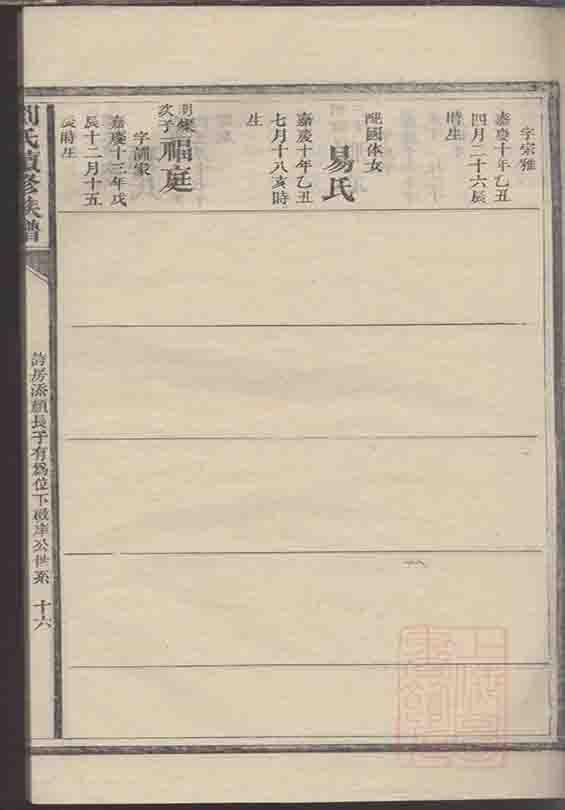 字宗雅
嘉慶十年乙丑
四月二十六辰
時生
配國体女
易氏
嘉慶十年乙丑
七月十八亥時
生
明燦
次子
福庭
字
嘉慶十三年戊
辰十二月十五
辰時生
氏續修族譜
房添
長子有爲位下
公世系
十六